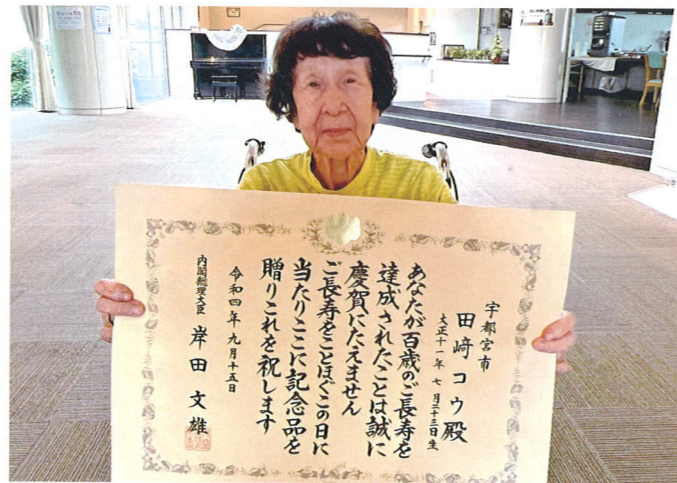 宇都宮市
田﨑コウ殿
大正十一年 七月二十三日生
あなたが百歳のご長寿を
達成されたことは誠に
慶賀にたえません
ご長寿をことほぐこの日に
当たりここに記念品を
贈りこれを祝します
令和四年九月十五日
内閣総理大臣 岸田文雄